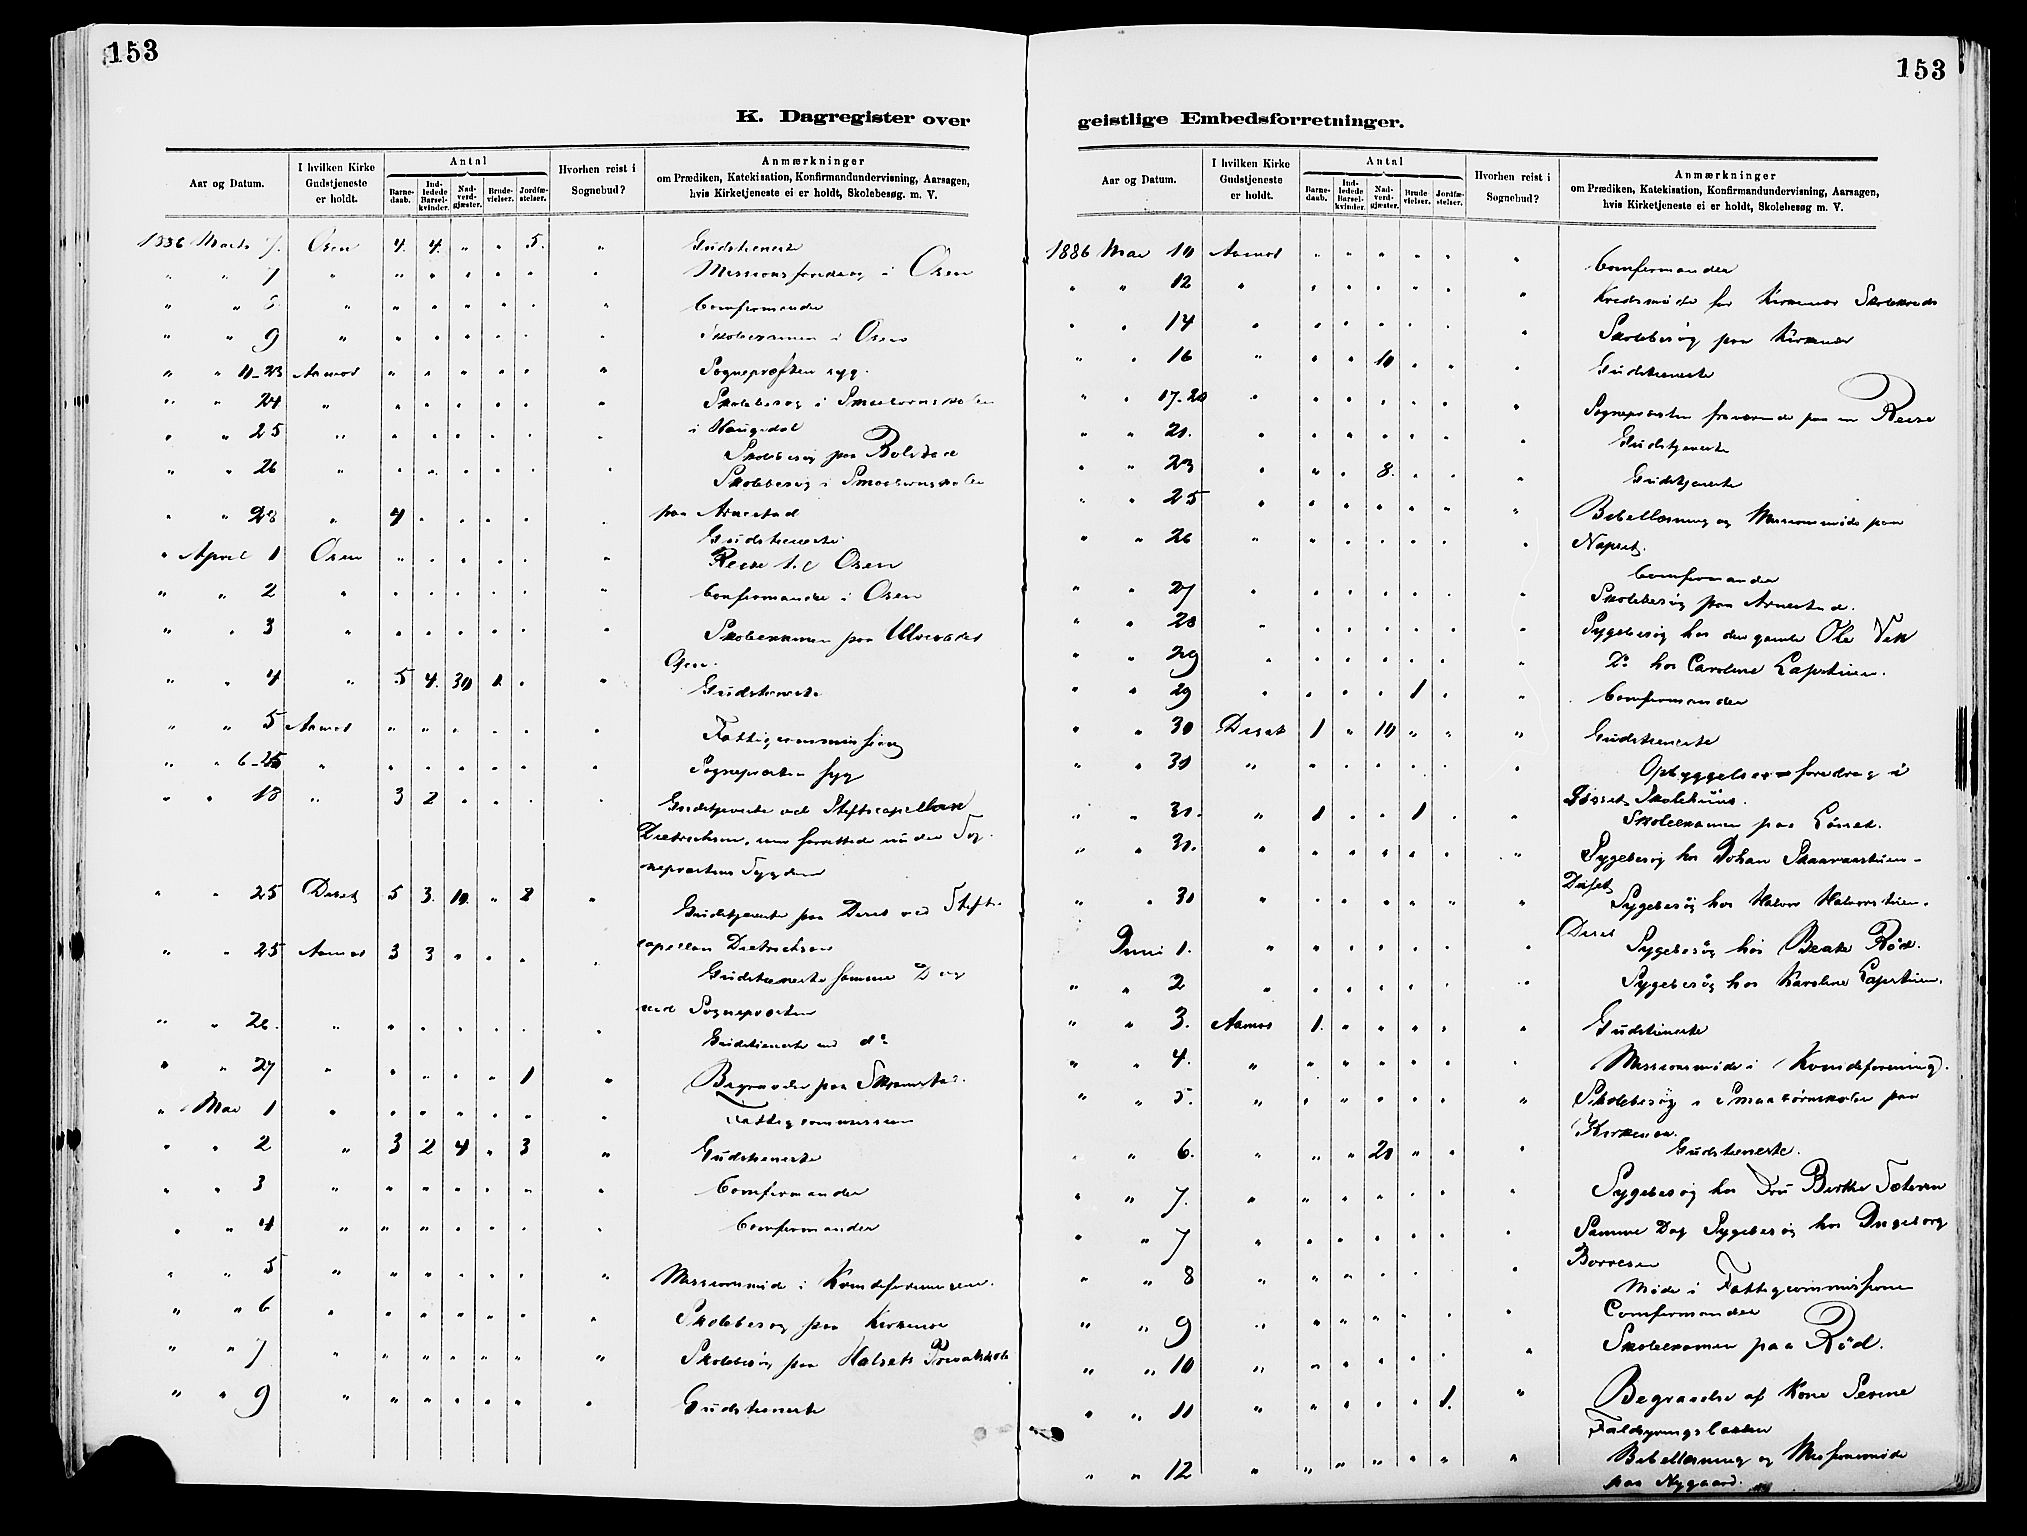 153
K. Dagregister over
Aar og Datum.
I hvilken Kirke
Gudstjeneste
er holdt.
Antal
Barne-
daab.
Ind-
ledede
Barsel-
kvinder.
Nad-
verd-
gjæster.
Brude-
vielser.
Jordfæ-
stelser.
Hvorhen reist i
Sognebud?
Anmærkninger
om Prædiken, Katekisation, Konfirmandundervisning, Aarsagen,
hvis Kirketjeneste ei er holdt, Skolebesøg. m. V.
1886 Marts 7. Osen 4. 4. " " 5. " Gudstieneste
" " 7 " " " " " " " Missionsforedrag i Osen
" " " " " " " " " Comfirmander
" " 9 " " " " " " " Skoleexamen i Osen
" " 11-23 Aamot " " " " " " Sognepræsten syg.
" " 24 " " " " " " " Skolebesøg i Smaabørnskolen
i Haugedal
" " 25 " " " " " " " Skolebesøg paa
" " 26 " " " " " " " Skolebesøg i Smaabørnskolen
paa Arnestad
" " 28 " 4 " " " " " Gudstieneste
" April 1 Osen " " " " " " Reise til Osen
" " 2 " " " " " " " Confirmander i Osen
" " 3 " " " " " " " Skoleexamen paa
Osen.
" " 4 " 5 4. 30 1. " " Gudstieneste
" " 5 Aamot " " " " " " Fattigcommission
" " 6-25 " " " " " " " Sognepræsten syg
" " 18 " 3 2 " " " " Gudstjeneste ved Stiftscapellan
Dietrichson, som forrettede under Sog-
nepræstens Sygdom
" " 25 Deset 5 3. 10. " 2 " Gudstjeneste paa Deset ved Stifts-
capellan Dietrichson
" " 25 Aamot 3 3 " " " " Gudstieneste samme Dag
ved Sognepræsten
" " 26. " " " " " " " Gudstieneste ved do
" " 27 " " " " " 1 " Begravelse paa
" Mai 1 " " " " " " " Fattigcommission
" " 2 " 3 2 4 " 3 " Gudstieneste
" " 3 " " " " " " " Comfirmander
" " 4 " " " " " " " Comfirmander
" " 5 " " " " " " " Missionsmøde i Kvindeforeningen.
" " 6 " " " " " " " Skolebesøg paa Kirkenær
" " 7 " " " " " " " Skolebesøg paa Halsets Privatskole
" " 9 " " " " " " " Gudstieneste
153
geistlige Embedsforretninger.
Aar og Datum.
I hvilken Kirke
Gudstjeneste
er holdt.
Antal
Barne-
daab.
Ind-
ledede
Barsel-
kvinder.
Nad-
verd-
gjæster.
Brude-
vielser.
Jordfæ-
stelser.
Hvorhen reist i
Sognebud?
Anmærkninger
om Prædiken, Katekisation, Konfirmandundervisning, Aarsagen,
hvis Kirketjeneste ei er holdt, Skolebesøg m. V.
1886 Mai 10 Aamot " " " " " " Comfirmander
" " 12 " " " " " " " Kredsmøde for Kirkenær Skolekreds
" " 14 " " " " " " " Skolebesøg paa Kirkenær
" " 16 " " " 10 " " " Gudstieneste
" " 17-20 " " " " " " " Sognepræsten fraværende paa en Reise
" " 21. " " " " " " " Gudstjeneste
" " 23 " " " 8. " " " Gudstjeneste
" " 25 " " " " " " " Bibellæsning og Missionsmøde paa
Napset.
" " 26 " " " " " " " Comfirmander
" " 27 " " " " " " " Skolebesøg paa Arnestad.
" " 28 " " " " " " " Sygebesøg hos den gamle Ole
" " 29 " " " " " " " Do hos Caroline
" " 29 " " " " 1 " " Comfirmander
" " 30 Deset 1 " 10 " " " Gudstieneste
" " 30 " " " " " " " Opbyggelsesforedrag i
Løsset Skolehuus.
" " 31. " 1 " " 1 " " Skoleexamen paa Løsset.
" " 31. " " " " " " " Sygebesøg hos Johan
Deset
" " 30 " " " " " " " Sygebesøg hos Halvor
Deset
Juni 1. " " " " " " " Sygebesøg hos Beate Rød.
" " 2 " " " " " " " Sygebesøg hos Karoline
" " 3. Aamot 1. " " " " " Gudstieneste
" " 4. " " " " " " " Missionsmøde i Kvindeforening.
" " 5. " " " " " " " Skolebesøg i Smaabørnskolen paa
Kirkenær.
" " 6. " " " 20 " " " Gudstieneste.
" " 7. " " " " " " " Sygebesøg hos Fru Birthe Sæteren
" " 7 " " " " " " " Samme Dag Sygebesøg hos Ingeborg
Borresen
" " 8 " " " " " " " Møde i Fattigcommissionen
" " 9 " " " " " " " Comfirmander
" " 10 " " " " " " " Skoleexamen paa Rød.
" " 11 " " " " " 1. " Begravelse af Kone Serine
" " 12 " " " " " " " Bibellæsning og Missionsmøde
paa Nygaard.